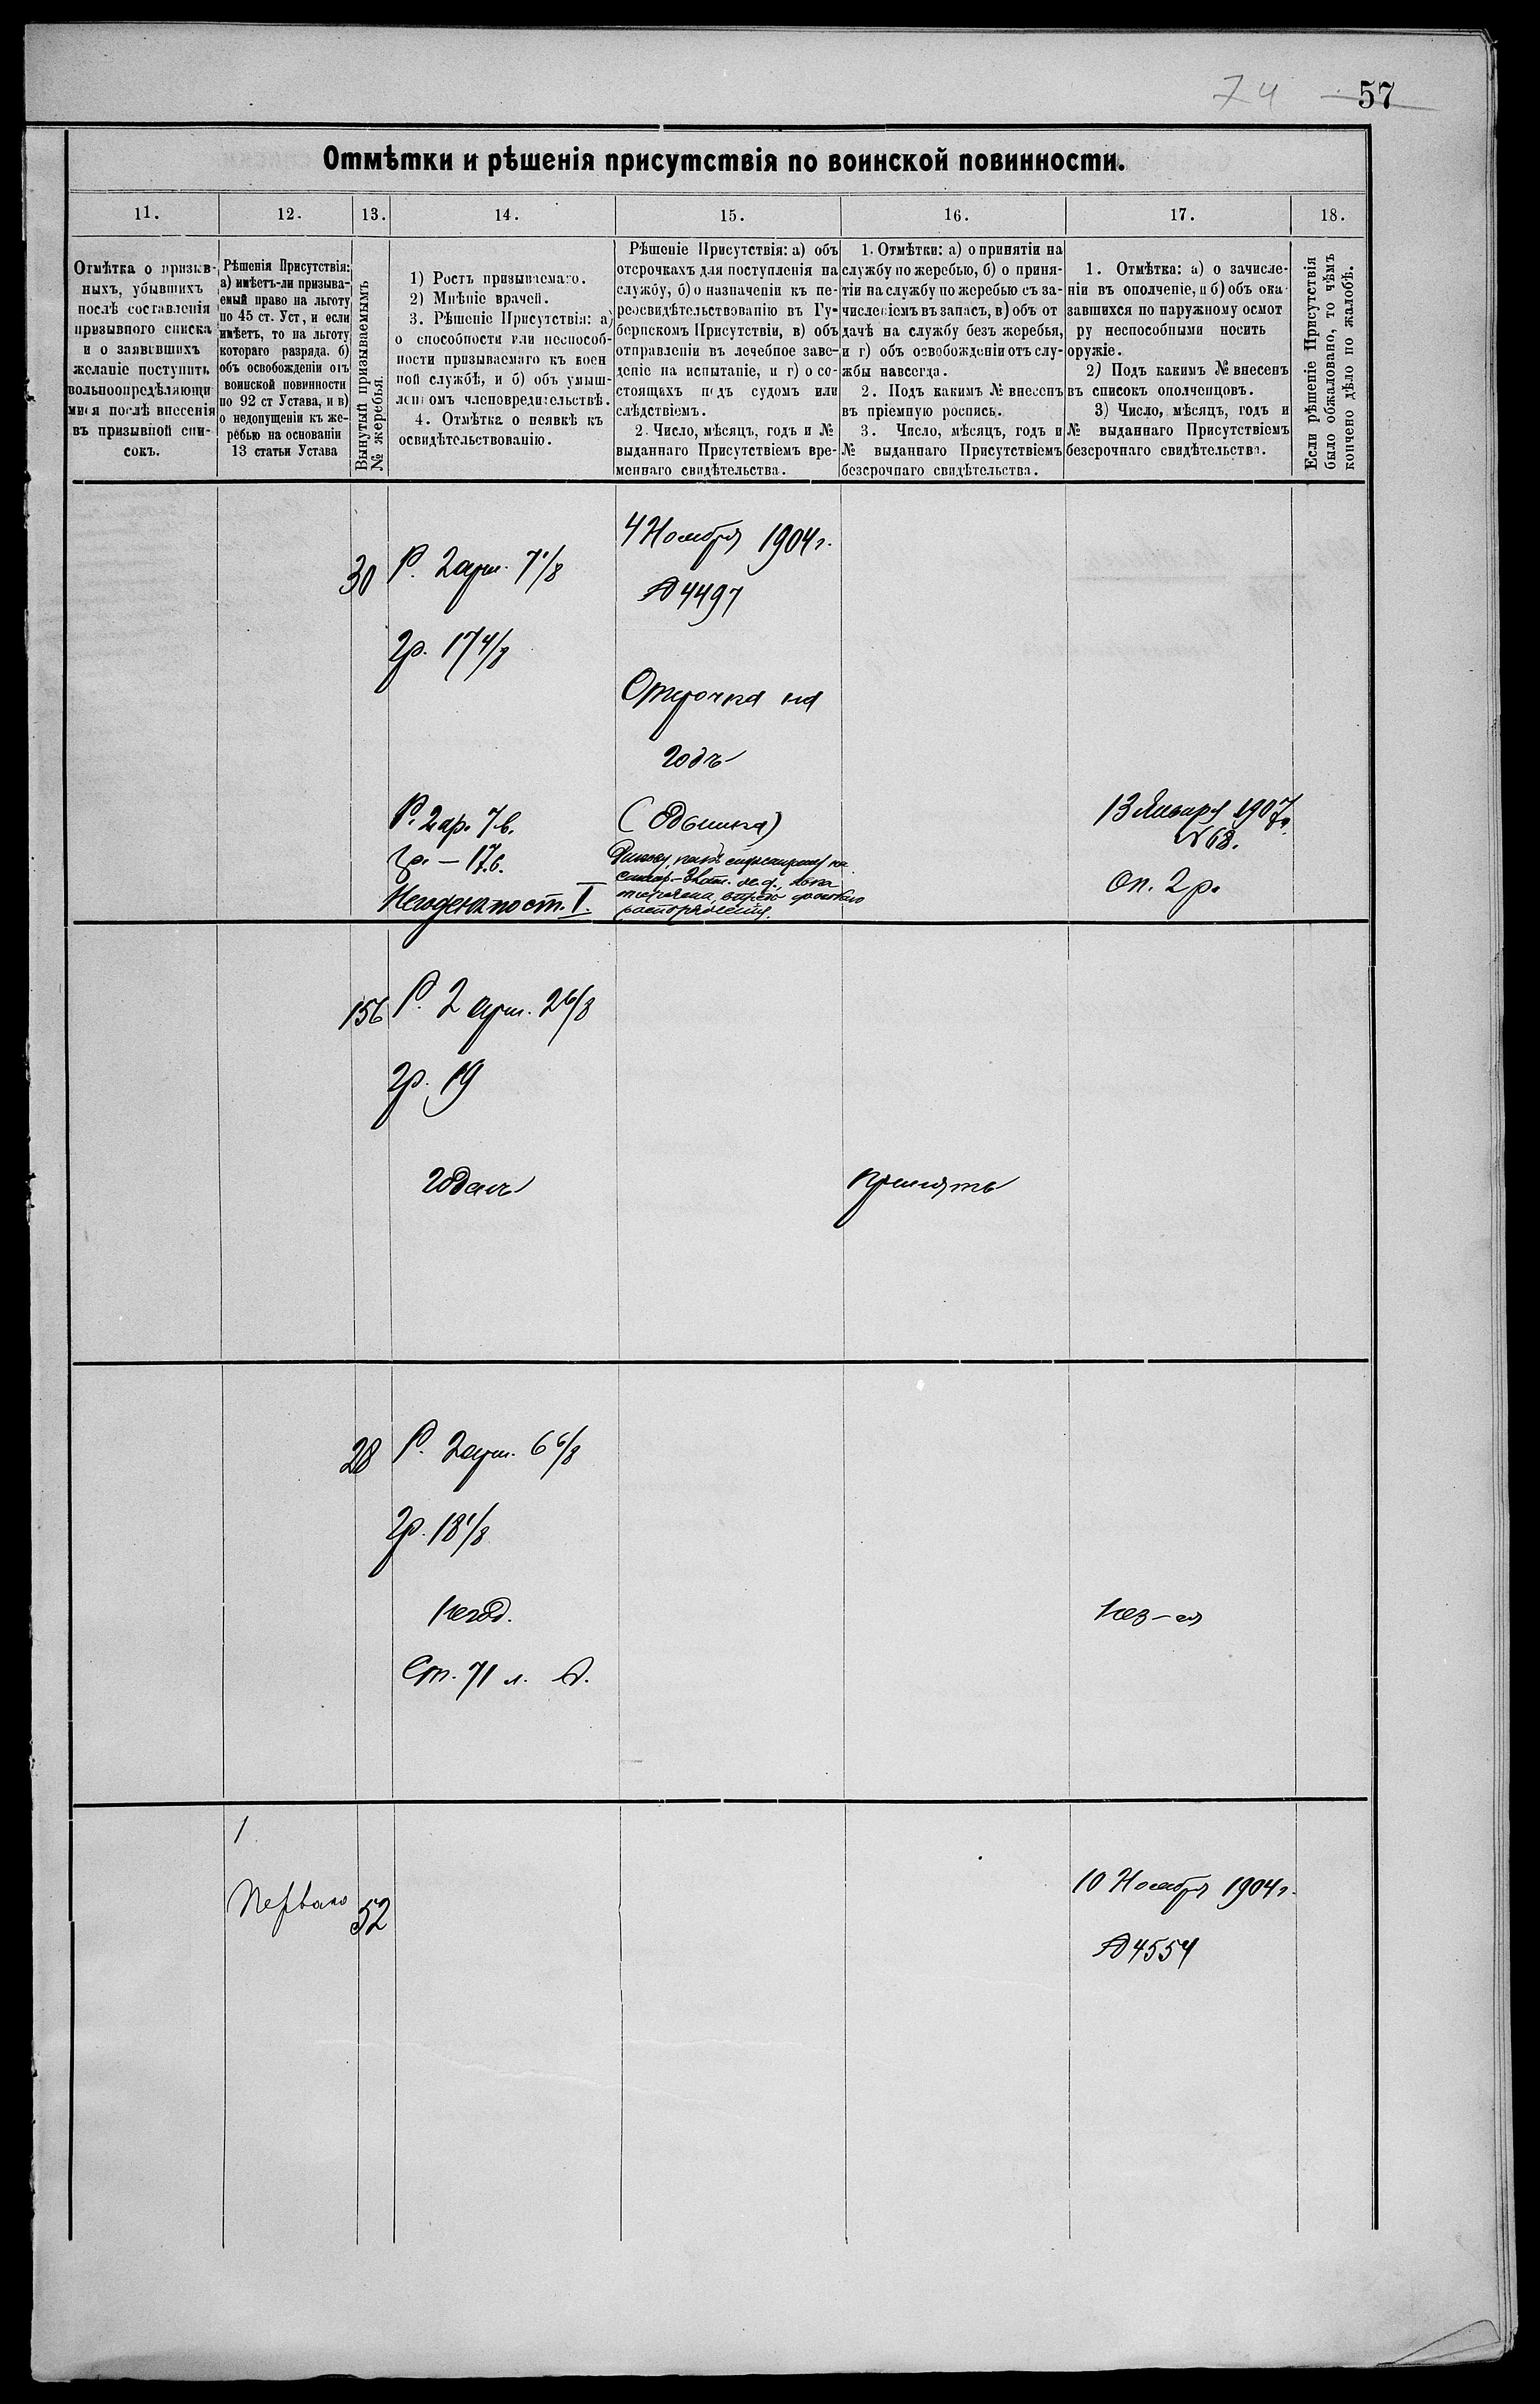 74 57
Отмѣтки и рѣшенія присутствія по воинской повинности.
11. 12. 13. 14. 15. 16. 17. 18.
Отмѣтка о призыв-
ныхъ, убывшихъ
послѣ составленія
призывного списка
и о заявившихъ
желаніе поступить
вольноопредѣляющи
мися послѣ внесенія
въ призывной спи-
сокъ.
Рѣшенія Присутствія:
а) имѣетъ-ли призыва-
емый право на льготу
по 45 ст. Уст, и если
имѣетъ, то на льготу
котораго разряда. б)
объ освобожденіи отъ
воинской повинности
по 92 ст Устава, и в)
о недопущеніи къ же-
ребью на основаніи
13 статьи Устава
Вынутый призываемымъ
№ жеребья.
1) Ростъ призываемаго.
2) Мнѣніе врачей.
3. Рѣшеніе Присутствія: а)
о способности или неспособ-
ности призываемаго къ воен
ной службѣ, и б) объ умыш-
леномъ членовредительствѣ.
4. Отмѣтка о неявкѣ къ
освидѣтельствованію.
Рѣшеніе Присутствія: а) объ
отсрочкахъ для поступленія на
службу, б) о назначеніи къ пе-
реосвидѣтельствованію въ Гу-
бернскомъ Присутствіи, в) объ
отправленіи въ лечебное заве-
деніе на испытаніе, и г) о со-
стоящихъ подъ судомъ или
слѣдствіемъ.
2. Число, мѣсяцъ, годъ и №
выданнаго Присутствіемъ вре-
меннаго свидѣтельства.
1. Отмѣтки: а) о принятіи на
службу по жеребью, б) о приня-
тіи на службу по жеребью съ за-
численіемъ въ запасъ, в) объ от
дачѣ на службу безъ жеребья,
и г) объ освобожденіи отъ слу-
жбы навсегда.
2. Подъ какимъ № внесенъ
въ пріемную роспись.
3. Число, мѣсяцъ, годъ и
№ выданнаго Присутствіемъ
безсрочнаго свидѣтельства.
1. Отмѣтка: а) о зачисле-
ніи въ ополченіе, и б) объ ока
завшихся по наружному осмот
ру неспособными носить
оружіе.
2) Подъ какимъ № внесенъ
въ списокъ ополченцовъ.
3) Число, мѣсяцъ, годъ и
№ выданнаго Присутствіемъ
безсрочнаго свидѣтельства.
Если рѣшеніе Присутствія
было обжаловано, то чѣмъ
кончено дѣло по жалобѣ.
30
Р. 2 арш. 7 1/8
гр. 17 4/8
Р. 2 ар. 7 в.
гр. – 17 в.
Негоденъ по ст. I.
4 Ноября 1904 г.
№ 4497
Отсрочка на
годъ
(Одышка)
распоряженія.
13 Января 1907 г.
№ 68.
Оп. 2 р.
156
Р. 2 арш. 2 6/8
гр. 19
годенъ
принять
28
Р. 2 арш. 6 6/8
гр. 18 1/8
негод.
Ст. 71 л. А.
1
Перваго
52
10 Ноября 1904 г.
№ 4554